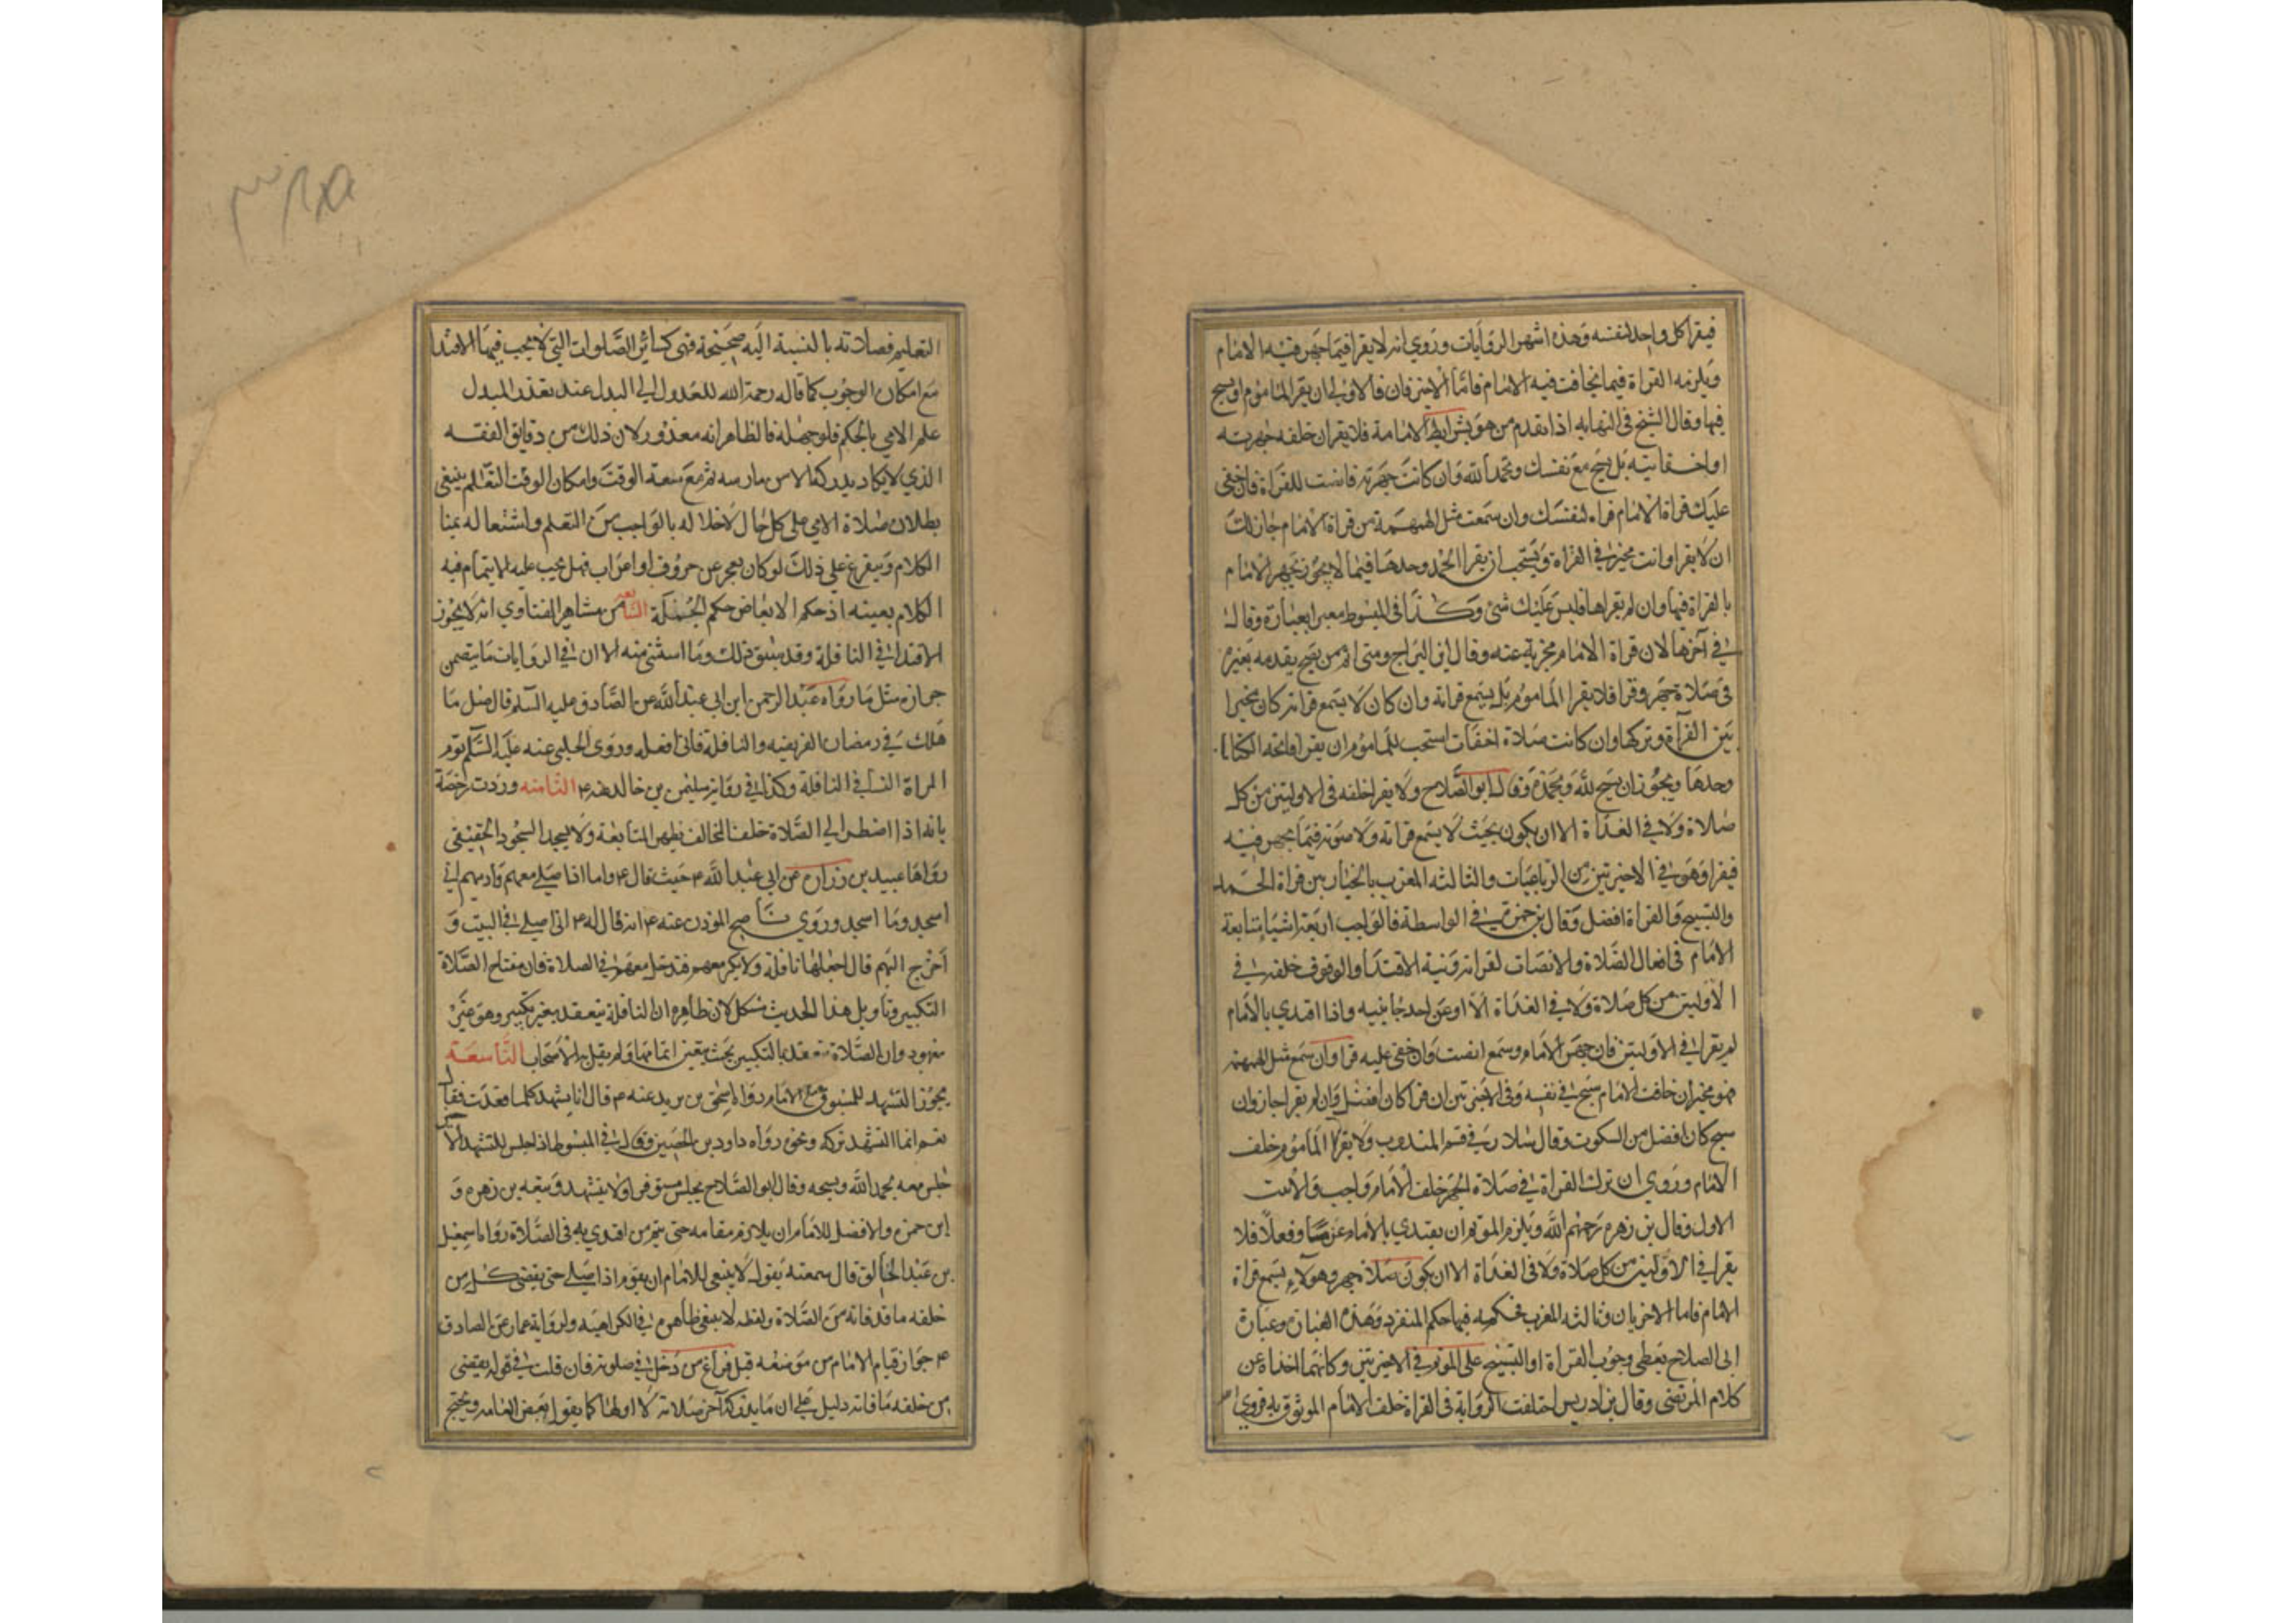 فيقرا كل واحد لنفسه وهذه اشهر الروايات وروي انه لا يقرا فيما جهر فيه الامام
ويلزمه القراة فيما يخافت فيه الامام فاما الاخيرتان فالاولى ان يقرا الماموم او يسبح
فيها وقال الشيخ في النهايه اذا تقدم من هو بشرايط الامامة فلا يقران خلفه جهرته
او اخفاتيته بل يسبح مع نفسك وتحمد الله وان كانت جهرته فانست للقراة فان خفى
عليك قراة الامام قراه لنفسك وان سمعت مثل الهمهمة من قراة الامام جاز لك
ان لا يقرا وانت مخير في القراة ويستحب ان يقرا الحمد وحدها فيما لا يجوز يجهر الامام
بالقراة فيها وان لم يقراها فليس عليك شئ وكذا في المبسوط معبرا بعبارة وقال
في آخرها لان قراة الامام مجزية عنه وقال ابن البراج ومتى ام من يصح تقدمه بغيره
في صلاة جهر وقرا فلا يقرا الماموم بل يستمع قراته وان كان لا يسمع قراته كان مخيرا
بين القرآة وتركها وان كانت صلاة اخفات استحب للماموم ان يقرا فاتحه الكتاب
وحدها ويجوز ان يسبح لله ويحمده وقال ابو الصلاح ولا يقرا خلفه في الاوليتين من كل
صلاة ولا في الغداة الا ان يكون بحيث لا يسمع قراته ولا صوته فيما يجهر فيه
فيقرا وهو في الاخيرتين من الرباعيات والثالثه المغرب بالخيار بين قراة الحمد
والتسبيح والقراة افضل وقال بن حمزة في الواسطة فالواجب اربعة اشيا متابعة
الامام في افعال الصلاة والانصات لقراته ونية الاقتدا والوقوف خلفه في
الاوليتين من كل صلاة ولا في الغداة الا او عن احد جانبيه واذا اقتدي بالامام
لم يقرا في الاوليتين فان جهر الامام وسمع انصت وان خفى عليه قرا وان سمع مثل الهمهمة
فهو مخير ان خافت الامام سبح في نفسه وفي الاخيرتين ان قرا كان افضل وان لم يقرا جاز وان
سبح كان افضل من السكوت وقال سلار في قسم المندوب ولا يقرا الماموم خلف
الامام وروي ان ترك القراة في صلاة الجهر خلف الامام واجب والاثبت
الاول وقال بن زهره رحمهم الله ويلزم الموتم ان يقتدي بالامام عزما وفعلا فلا
يقرا في الاوليتين من كل صلاة ولا في الغداة الا ان يكون صلاة جهر وهو لا يسمع قراة
الامام فاما الاخريان وثالثه المغرب فحكمه فيها حكم المنفرد وهذه العبارة وعبارة
ابي الصلاح يعطي وجوب القراة او التسبيح على الموتم في الاخيرتين وكانهما اخذاه عن
كلام المرتضى وقال بن ادريس اختلفت الرواية في القراة خلف الامام الموثوق به فروي
التعليم فصلاته بالنسبة اليه صحيحة فهي كسائر الصلوات التي لا يجب فيها الاقتدا
مع امكان الوجوب كما قاله رحمة الله للعدول الي البدل عند تعذر المبدل
علم الامي بالحكم فلو جهله فالظاهر انه معذور لان ذلك من دقايق الفقه
الذي لا يكاد يدركه الا من مارسه ثم مع سعة الوقت وامكان الوقت التعلم ينبغي
بطلان صلاة الامي على كل حال لاخلاله بالواجب من التعلم واشتغاله
الكلام ويتفرع علي ذلك لو كان يعجز عن حروف او اعراب فهل يجب عليه الايتمام فيه
الكلام بعينه اذ حكم الابعاض حكم الجملة السابعه من مشاهير الفتاوي انه لا يجوز
الاقتدا في النافلة وقد سبق ذلك وما استثني منه الا ان في الروايات ما يتضمن
جوازه مثل ما رواه عبد الرحمن ابن ابي عبد الله عن الصادق عليه السلم قال صل ما
هلك في رمضان الفريضه والنافلة فاني افعله وروى الحلبي عنه عليه السلم توم
المراة النسا في النافلة وكذا في رواية سليمن بن خالد عنه ع الثامنه وردت رخصة
بانه اذا اضطر الي الصلاة خلف المخالف يظهر المتابعة ولا يسجد السجود الحقيقي
رواها عبيد بن زرارة عن ابي عبد الله ع حيث قال ع واما انا اصلي معهم وأريهم اني
اسجد وما اسجد وروي ناصح الموذن عنه ع انه قال له ع اني اصلي في البيت و
أخرج اليهم قال اجعلها نافلة ولا تكبر معهم فتدخل معهم في الصلاة فان مفتاح الصلاة
التكبير وتاويل هذا الحديث مشكل لان ظاهره ان النافلة ينعقد بغير تكبير وهو غير
معهود وان الصلاة تنعقد بالتكبير بحيث يتعين اتمامها ولم يقل به الاصحاب التاسعة
يجوز التشهد للمسبوق مع الامام رواه اسحق بن يزيد عنه ع قال انا يتشهد كلما قعدت فقال
نعم انما التشهد بركة ونحوه رواه داود بن الحصين وقال في المبسوط اذا جلس للتشهد الاخير
جلس معه يحمد الله ويسبحه وقال ابو الصلاح يجلس مستوفزا ولا يتشهد وتبعه بن زهره و
ابن حمزه والافضل للامام ان يلازم مقامه حتى يتم من اقتدي به في الصلاة رواه اسمعيل
بن عبد الخالق قال سمعته يقول لا ينبغي للامام ان يقوم اذا صلى حتى يقضى كل من
خلفه ما قد فاته من الصلاة ولفظه لا ينبغي ظاهره في الكراهيه ولرواية عمار عن الصادق
ع جواز قيام الامام من موضعه قبل فراغ من دخل في صلوته فان قلت في قوله يقضى
من خلفه ما فاته دليل على ان ما يدركه آخر صلاته لا اولها كما يقوله بعض العامه ويحتج